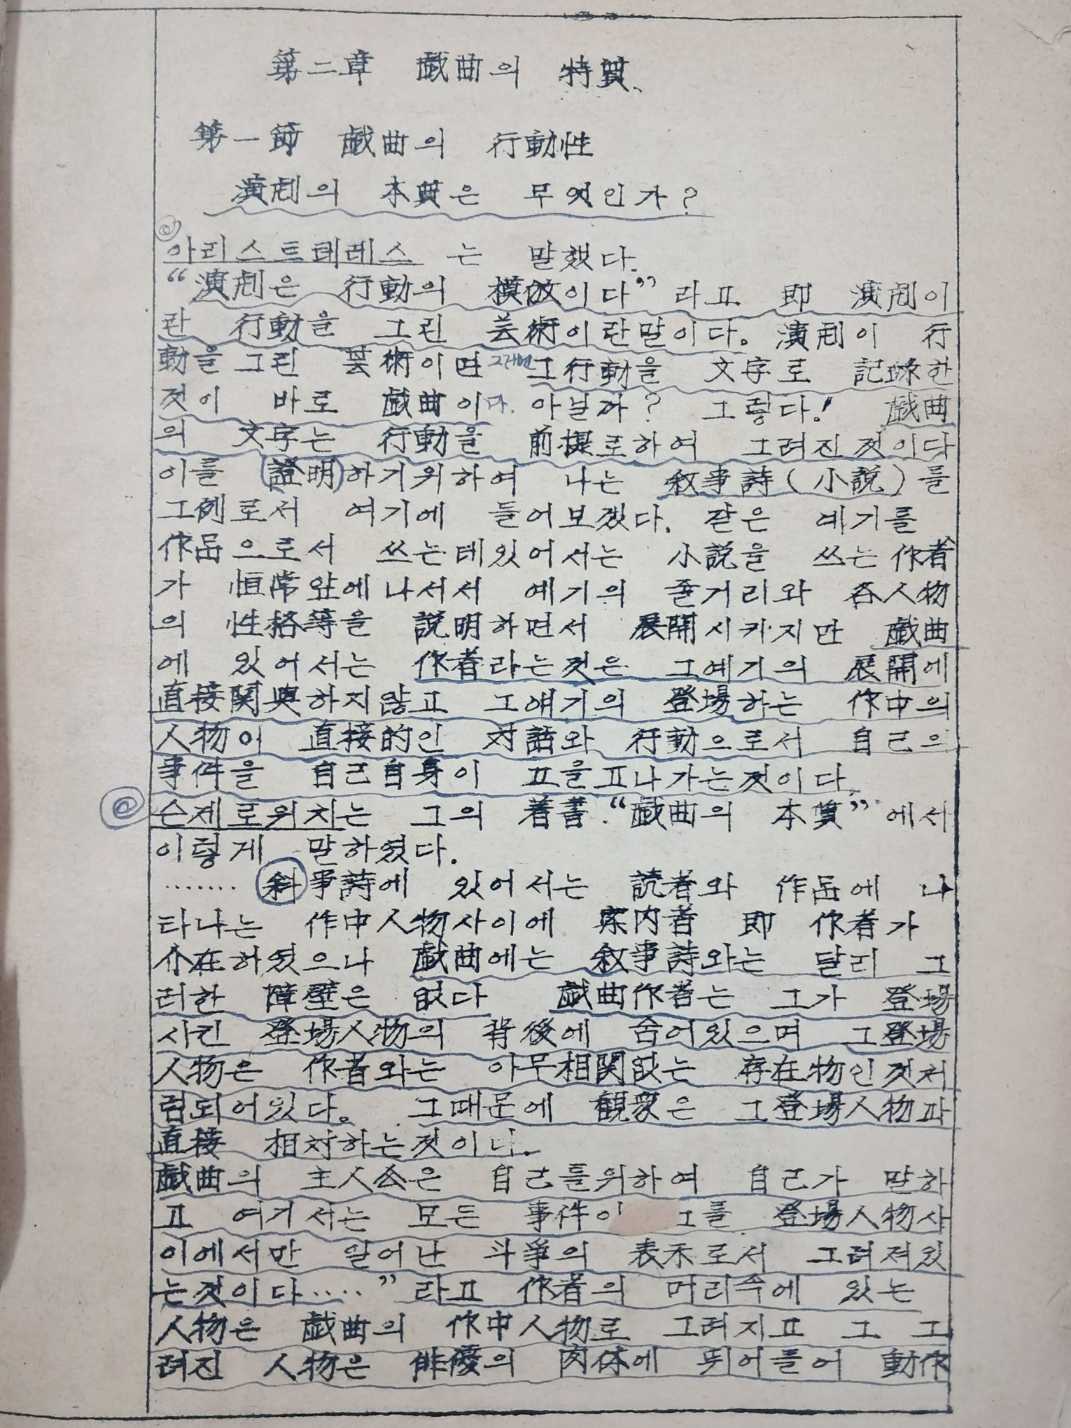 第二章 戱曲의 特質、
第一節 戱曲의 行動性
演剧의 本質은 무엇인가?
아리스트테레스 는 말했다.
“演剧은 行動의 模倣이다” 라고 即 演剧이
란 行動을 그린 芸術이란말이다。 演剧이 行
動을 그린 芸術이면 그러면 그行動을 文字로 記録한
것이 바로 戱曲이다. 아닐까? 그렇다! 戱曲
의 文字는 行動을 前提로하여 그려진것이다
이를 (證明)하기위하여 나는 敘事詩(小說)를
그例로서 여기에 들어보겠다. 같은 예기를
作品으로서 쓰는데있어서는 小説을 쓰는作者
가 恒常앞에나서서 예기의 줄거리와 各人物
의 性格等을 説明하면서 展開시키지만 戱曲
에 있어서는 作者라는것은 그예기의 展開에
直接関與하지않고 그얘기의 登場하는 作中의
人物이 直接的인 対話와 行動으로서 自己의
事件을 自己自身이 끄을고나가는것이다.
@ 슨제로위치는 그의 著書“戱曲의 本質”에서
이렇게 말하였다.
……‥ 斜事詩에 있어서는 読者와 作品에 나
타나는 作中人物사이에 案内者 即 作者가
介在하였으나 戱曲에는 敘事詩와는 달리 그
러한 障壁은 없다 戱曲作者는 그가 登場
시킨 登場人物의 背後에 숨어있으며 그登場
人物은 作者와는 아무相関없는 存在物인것처
럼되어있다。 그때문에 観衆은 그登場人物과
直接 相対하는것이니.
戱曲의 主人公은 自己를위하여 自己가 말하
고 여기서는 모든 事件이 그를 登場人物사
이에서만 일어난 斗爭의 表示로서 그려져있
는것이다‥‥” 라고 作者의 머리속에 있는
人物은 戱曲의 作中人物로 그려지고 그 그
려진 人物은 俳優의 肉体에 뛰어들어 動作